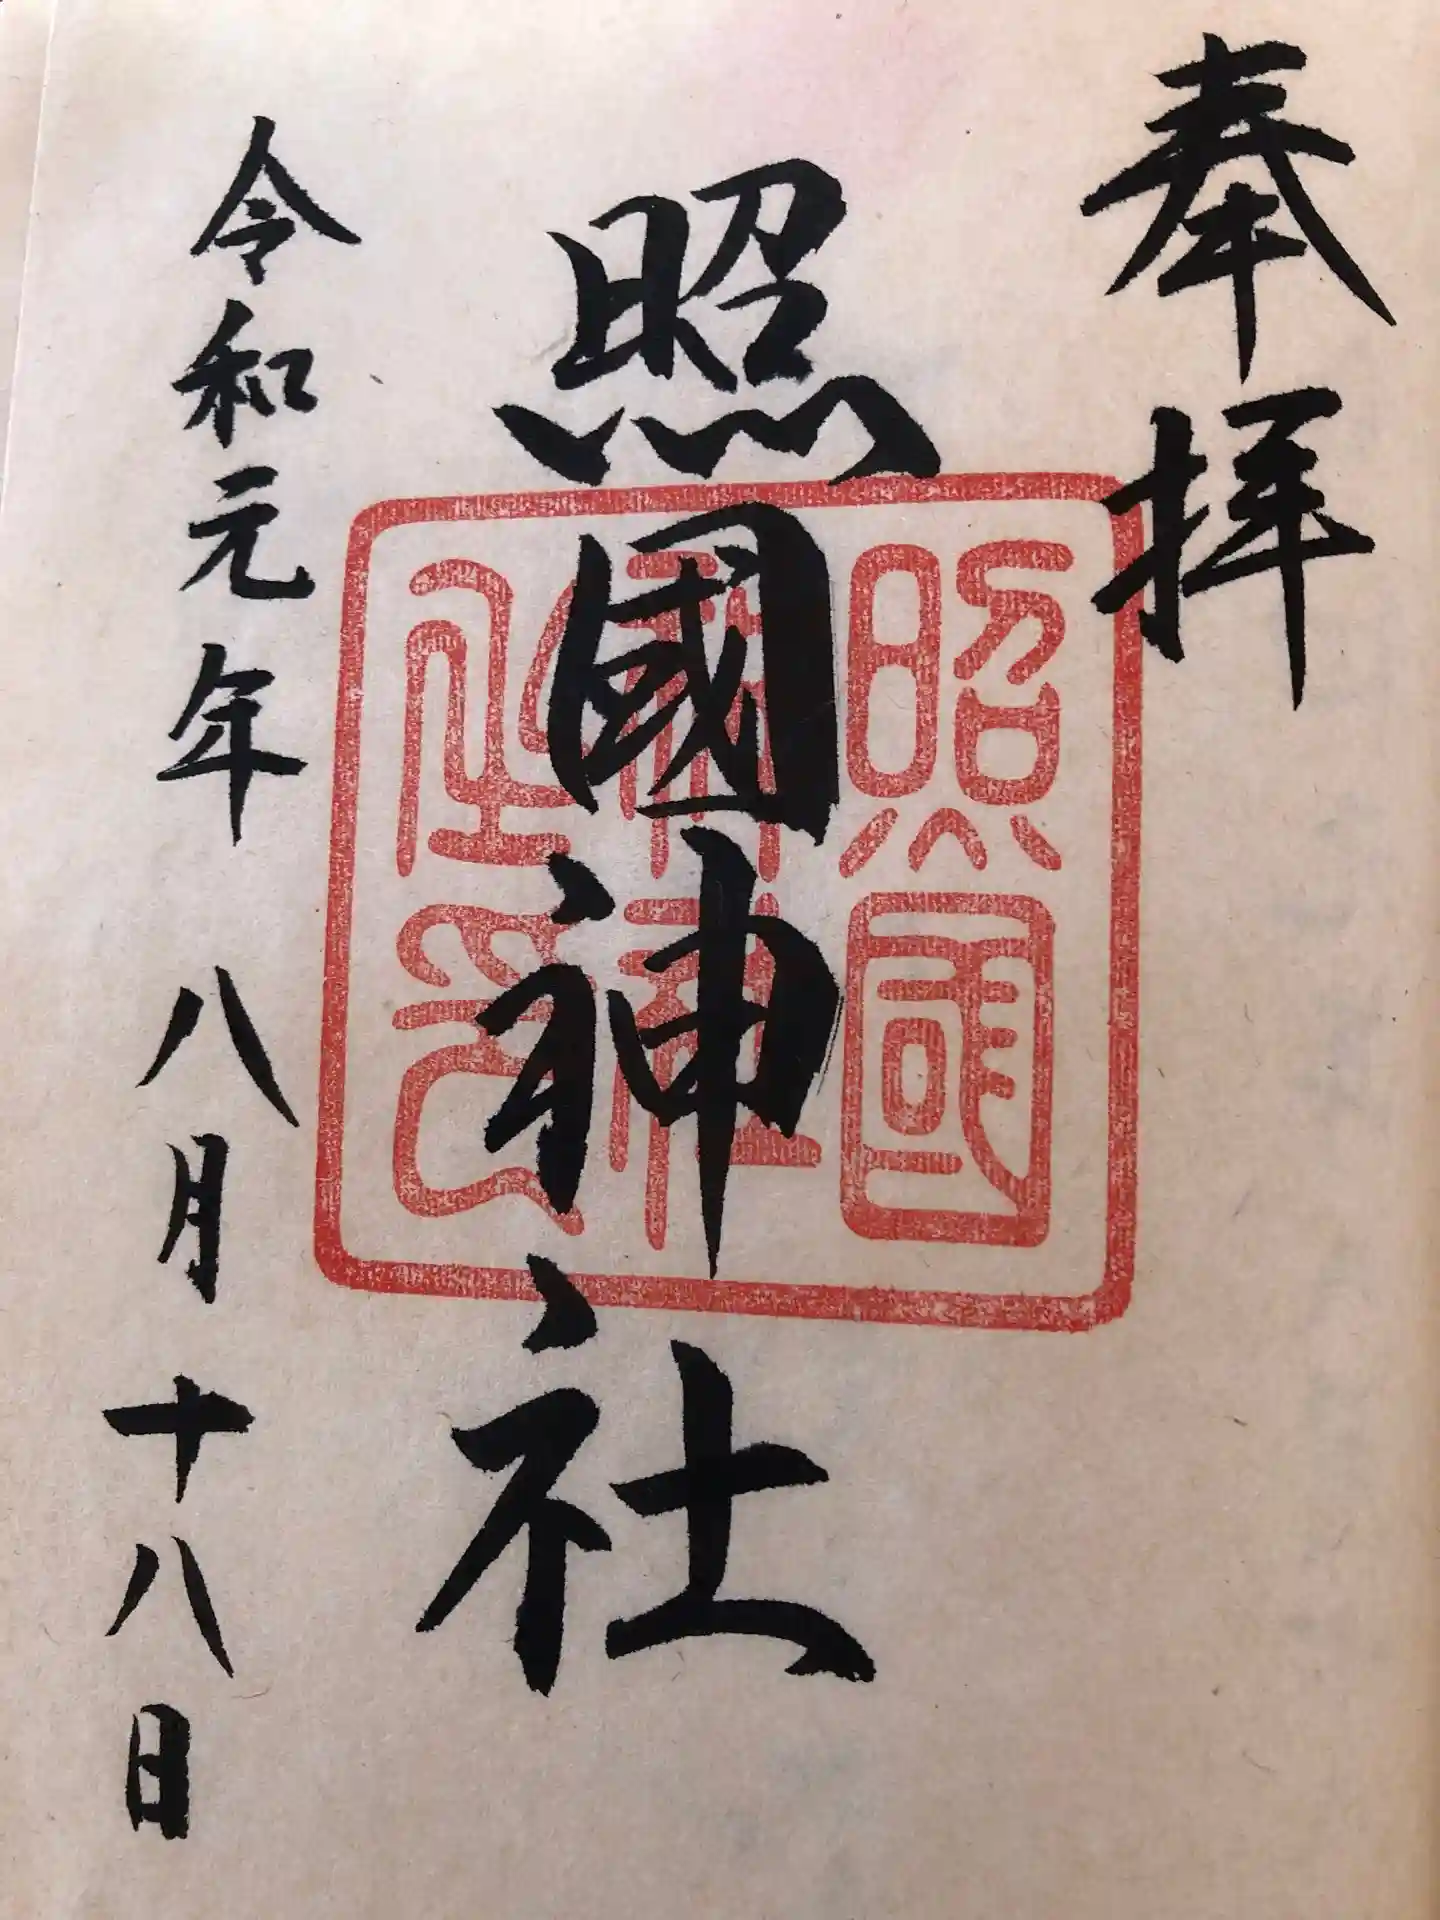 奉拝
照國神社
照國神社之印
令和元年 八月十八日